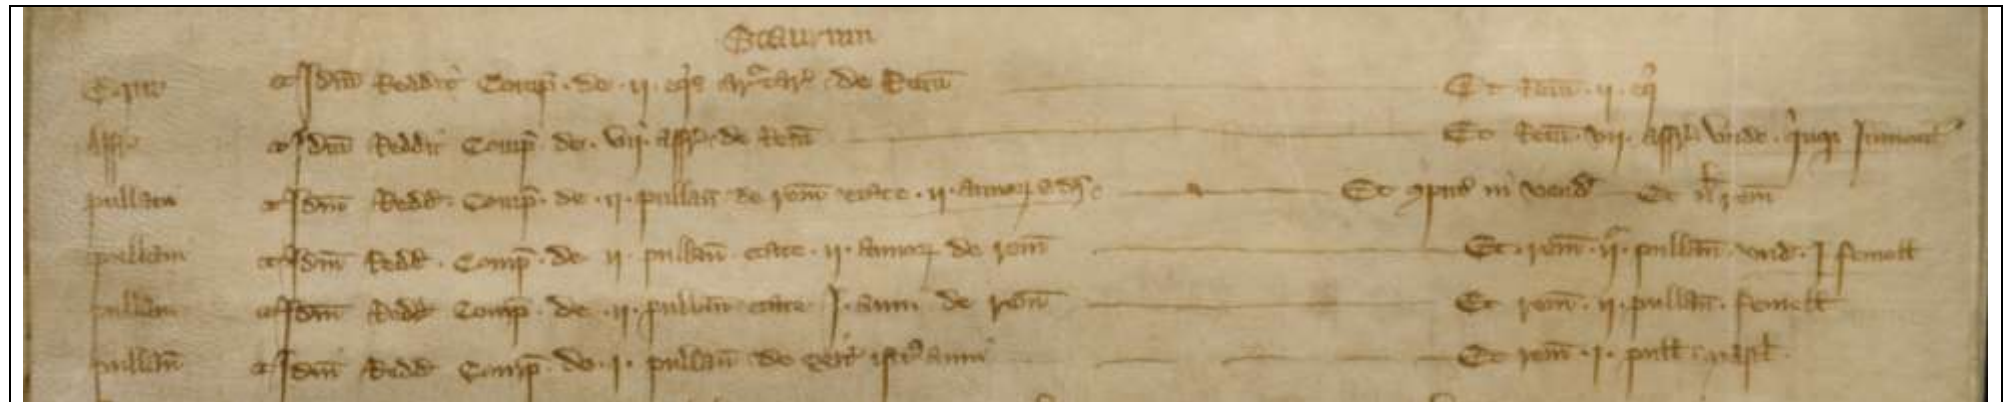 Staurum
Equi Idem Reddit Comp̄ · de · ij · eq̄s car̄ · de Rem̄ Et Rem̄ · ij · eq̄
Affr̄ Idem Reddit Comp̄ · de · vij · affr̄ · de Rem̄ Et Rem̄ · vij · affr̄ · vnde · Jument̄
pullani Idem Redd̄ · Comp̄ · de · ij · pullan̄ de rem̄ etate · ij · annorꝝ Et vend̄ Et rem̄
pullani Idem Redd̄ · Comp̄ · de ij · pullan̄ · etate · ij · annorꝝ de rem̄ Et · rem̄ · ij · pullan̄ · vnd̄ · j femell̄
pullani Idem Redd̄ Comp̄ · de · ij · pullan̄ etate j · anni de rem̄ Et rem̄ · ij · pullan̄ · femell̄
pullan̄ Idem Redd̄ Comp̄ · de · j · pullan̄ de exit̄ isti9 anni Et rem̄ · j · pull̄ · mascl̄ ·